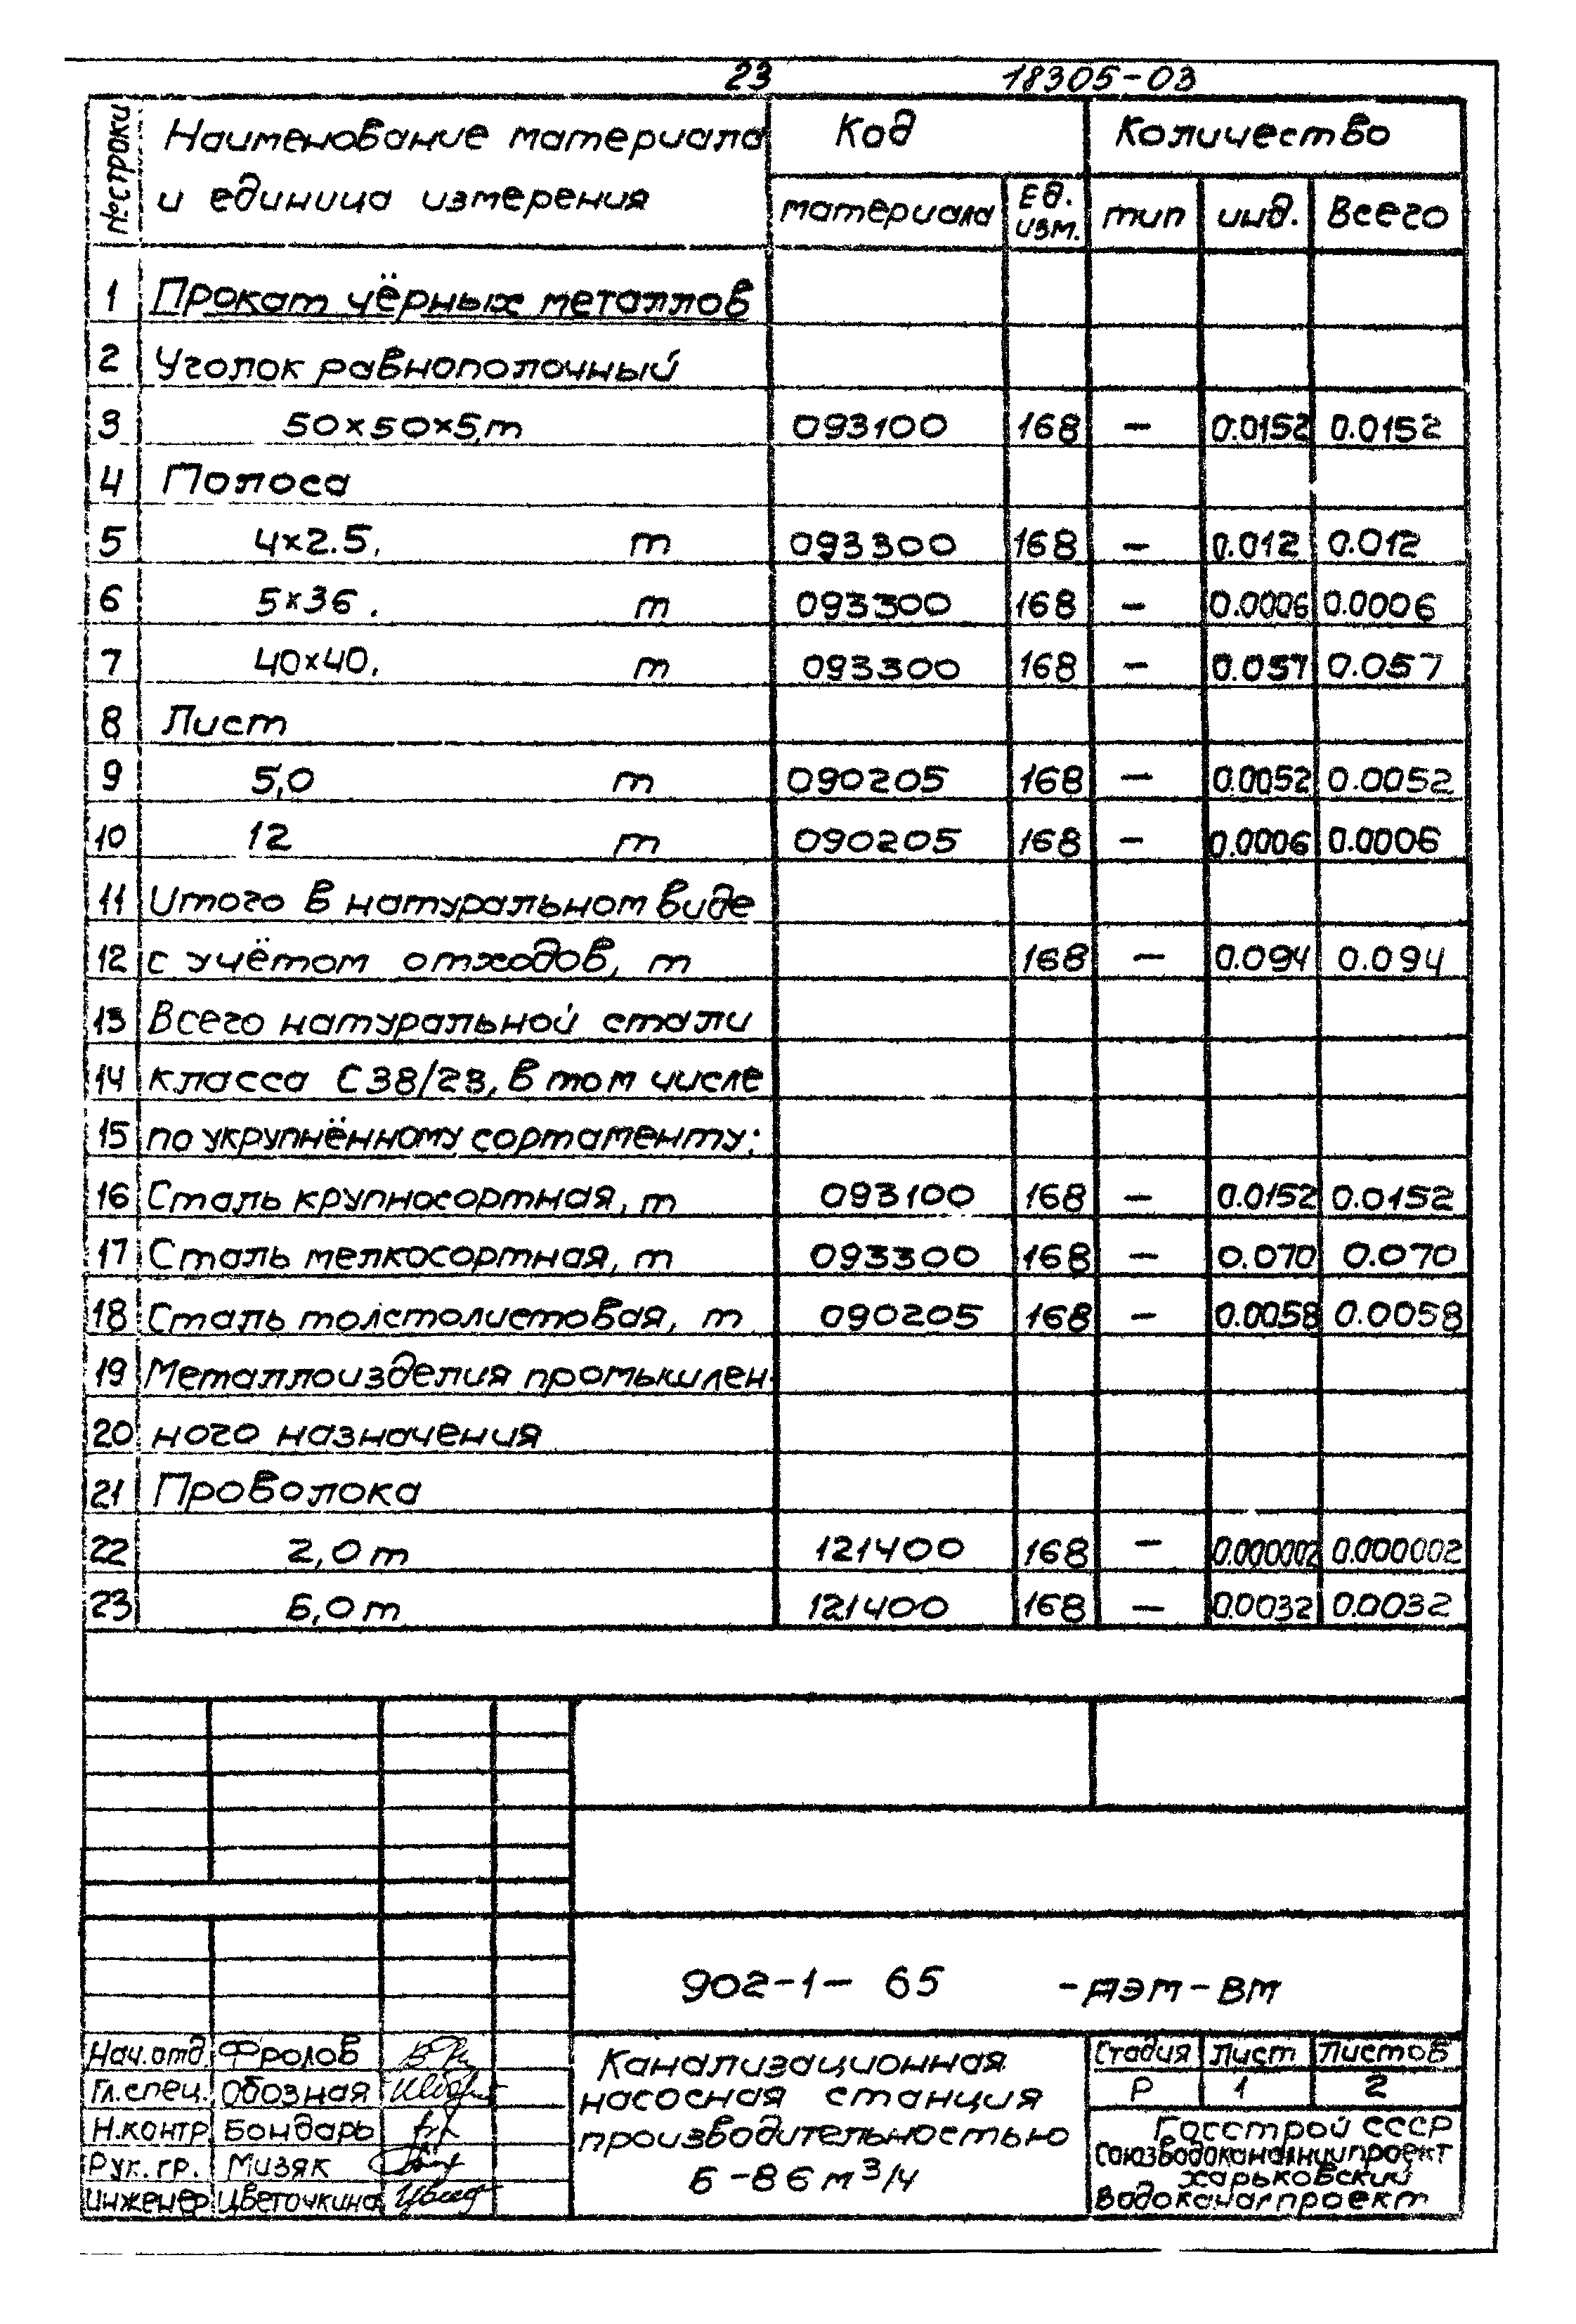 23 18305-03
№ строки
Наименование материала
и единица измерения
Код
Количество
материала
Ед.
изм.
тип
инд.
Всего
1 Прокат чёрных металлов
2 Уголок равнополочный
3 50×50×5,т 093100 168 – 0.0152 0.0152
4 Полоса
5 4×2.5, т 093300 168 – 0.012 0.012
6 5×36. т 093300 168 – 0.0006 0.0006
7 40×40, т 093300 168 – 0.057 0.057
8 Лист
9 5,0 т 090205 168 – 0.0052 0.0052
10 12 т 090205 168 – 0.0006 0.0006
11 Итого в натуральном виде
12 с учётом отходов, т 168 – 0.094 0.094
13 Всего натуральной стали
14 класса С38/23, в том числе
15 по укрупнённому сортаменту:
16 Сталь крупносортная, т 093100 168 – 0.0152 0.0152
17 Сталь мелкосортная, т 093300 168 – 0.070 0.070
18 Сталь толстолистовая, т 090205 168 – 0.0058 0.0058
19 Металлоизделия промышлен-
20 ного назначения
21 Проволока
22 2,0 т 121400 168 – 0.000002 0.000002
23 6,0 т 121400 168 – 0.0032 0.0032
902-1- 65 -АЭМ-ВМ
Нач.отд. Фролов
Гл.спец. Обозная
Н.контр. Бондарь
Рук.гр. Мизяк
Инженер Цветочкина
Канализационная
насосная станция
производительностью
6-86 м³/ч
Стадия Лист Листов
Р 1 2
Госстрой СССР
Союзводоканалниипроект
Харьковский
Водоканалпроект